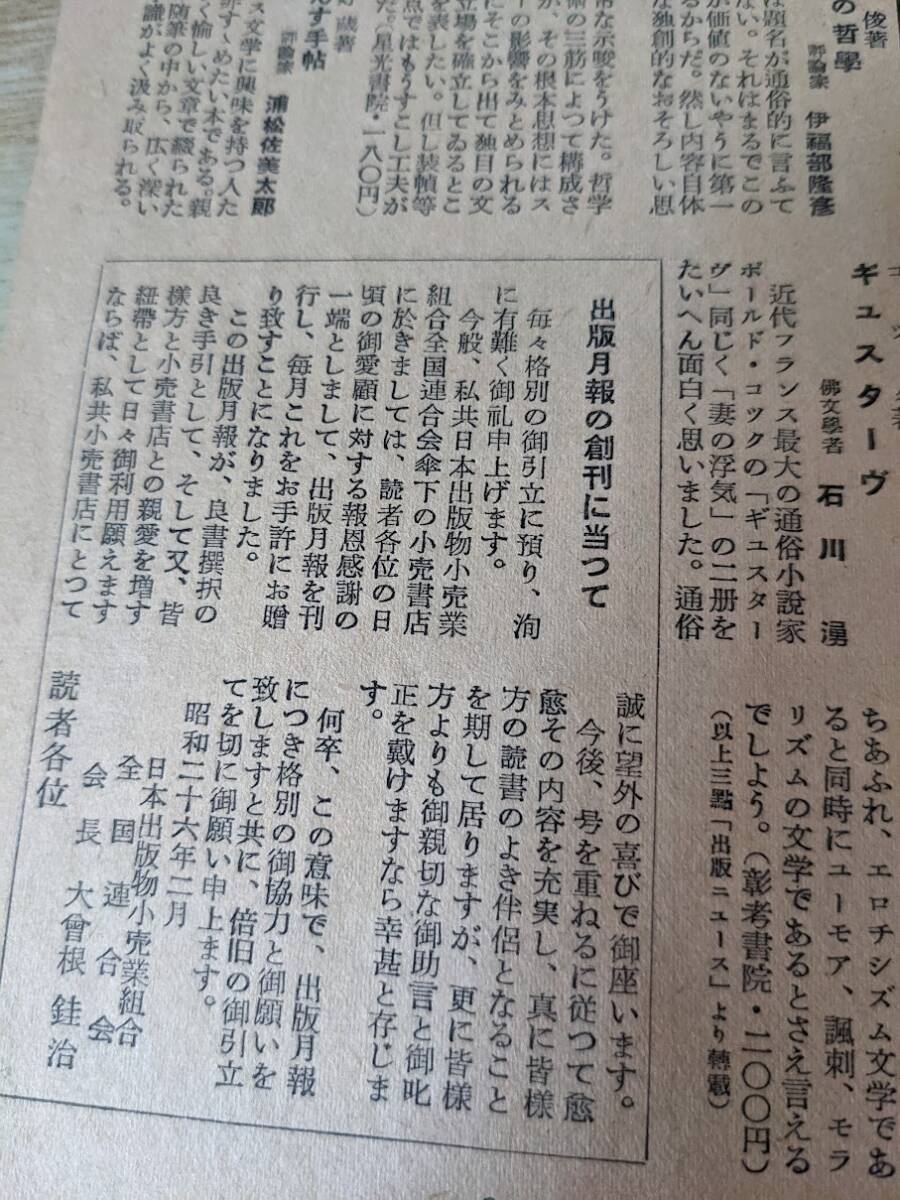 俊著
の哲學
評論家 伊福部隆彦
は題名が通俗的に言ふて
ない。それはまるでこの
が価値のないやうに第一
るからだ。然し内容自体
な独創的なおそろしい思
常な示唆をうけた。哲学
術の三筋によつて構成さ
が、その根本思想にはス
ーの影響をみとめられる
にそこから出て独目の文
立場を確立してゐるとこ
を表したい。但し装幀等
点ではもうすこし工夫が
た。星光書院・一八〇円)
蔵著
す手帖
評論家 浦松佐美太郎
ス文学に興味を持つ人た
非すゝめたい本である。親
く愉しい文章で綴られた
随筆の中から、広く深い
識がよく汲み取れる。
ギュスターヴ
佛文學者 石川湧
近代フランス最大の通俗小説家
ポールド・コックの「ギュスター
ヴ」同じく「妻の浮気」の二册を
たいへん面白く思いました。通俗
ちあふれ、エロチシズム文学であ
ると同時にユーモア、諷刺、モラ
リズムの文学であるとさえ言える
でしよう。(彰考書院・二〇〇円)
(以上三點「出版ニュース」より轉載)
出版月報の創刊に当つて
毎々格別の御引立に預り、洵
に有難く御礼申上げます。
今般、私共日本出版物小売業
組合全国連合会傘下の小売書店
に於きましては、読者各位の日
頃の御愛顧に対する報恩感謝の
一端としまして、出版月報を刊
行し、毎月これをお手許にお贈
り致すことになりました。
この出版月報が、良書撰択の
良き手引として、そして又、皆
様方と小売書店との親愛を増す
紐帯として日々御利用願えます
ならば、私共小売書店にとつて
誠に望外の喜びで御座います。
今後、号を重ねるに従つて愈
愈その内容を充実し、真に皆様
方の読書のよき伴侶となること
を期して居りますが、更に皆様
方よりも御親切な御助言と御叱
正を戴けますなら幸甚と存じま
す。
何卒、この意味で、出版月報
につき格別の御協力と御願いを
致しますと共に、倍旧の御引立
てを切に御願い申上ます。
昭和二十六年二月
日本出版物小売業組合
全国連合会
会長 大曾根銈治
読者各位